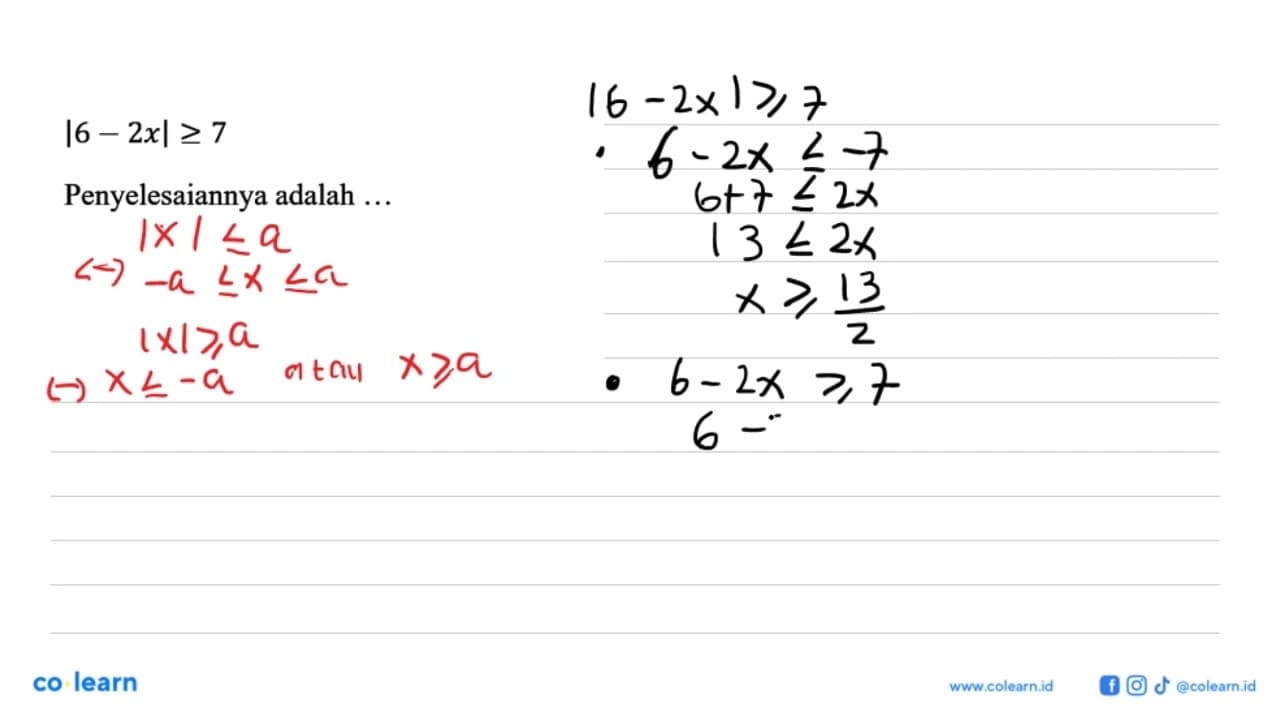 |6 − 2x| ≥ 7
Penyelesaiannya adalah …
|x| ≤ a
<-> -a ≤ x ≤ a
|x| ≥ a
(-) x ≤ -a atau x ≥ a
|6 - 2x| ≥ 7
• 6 - 2x ≤ -7
6+7 ≤ 2x
13 ≤ 2x
x ≥ 13/2
• 6 - 2x ≥ 7
6 -
co learn
www.colearn.id
@colearn.id